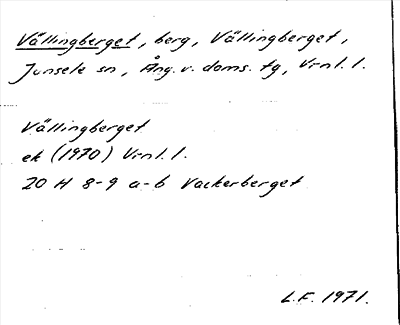 Vällingberget, berg, Vällingberget,
Junsele sn, Ång. v. doms. tg, Vrnl. l.
Vällingberget
ek (1970) Vrnl. l.
20 H 8-9 a-b Vackerberget
L.F. 1971.